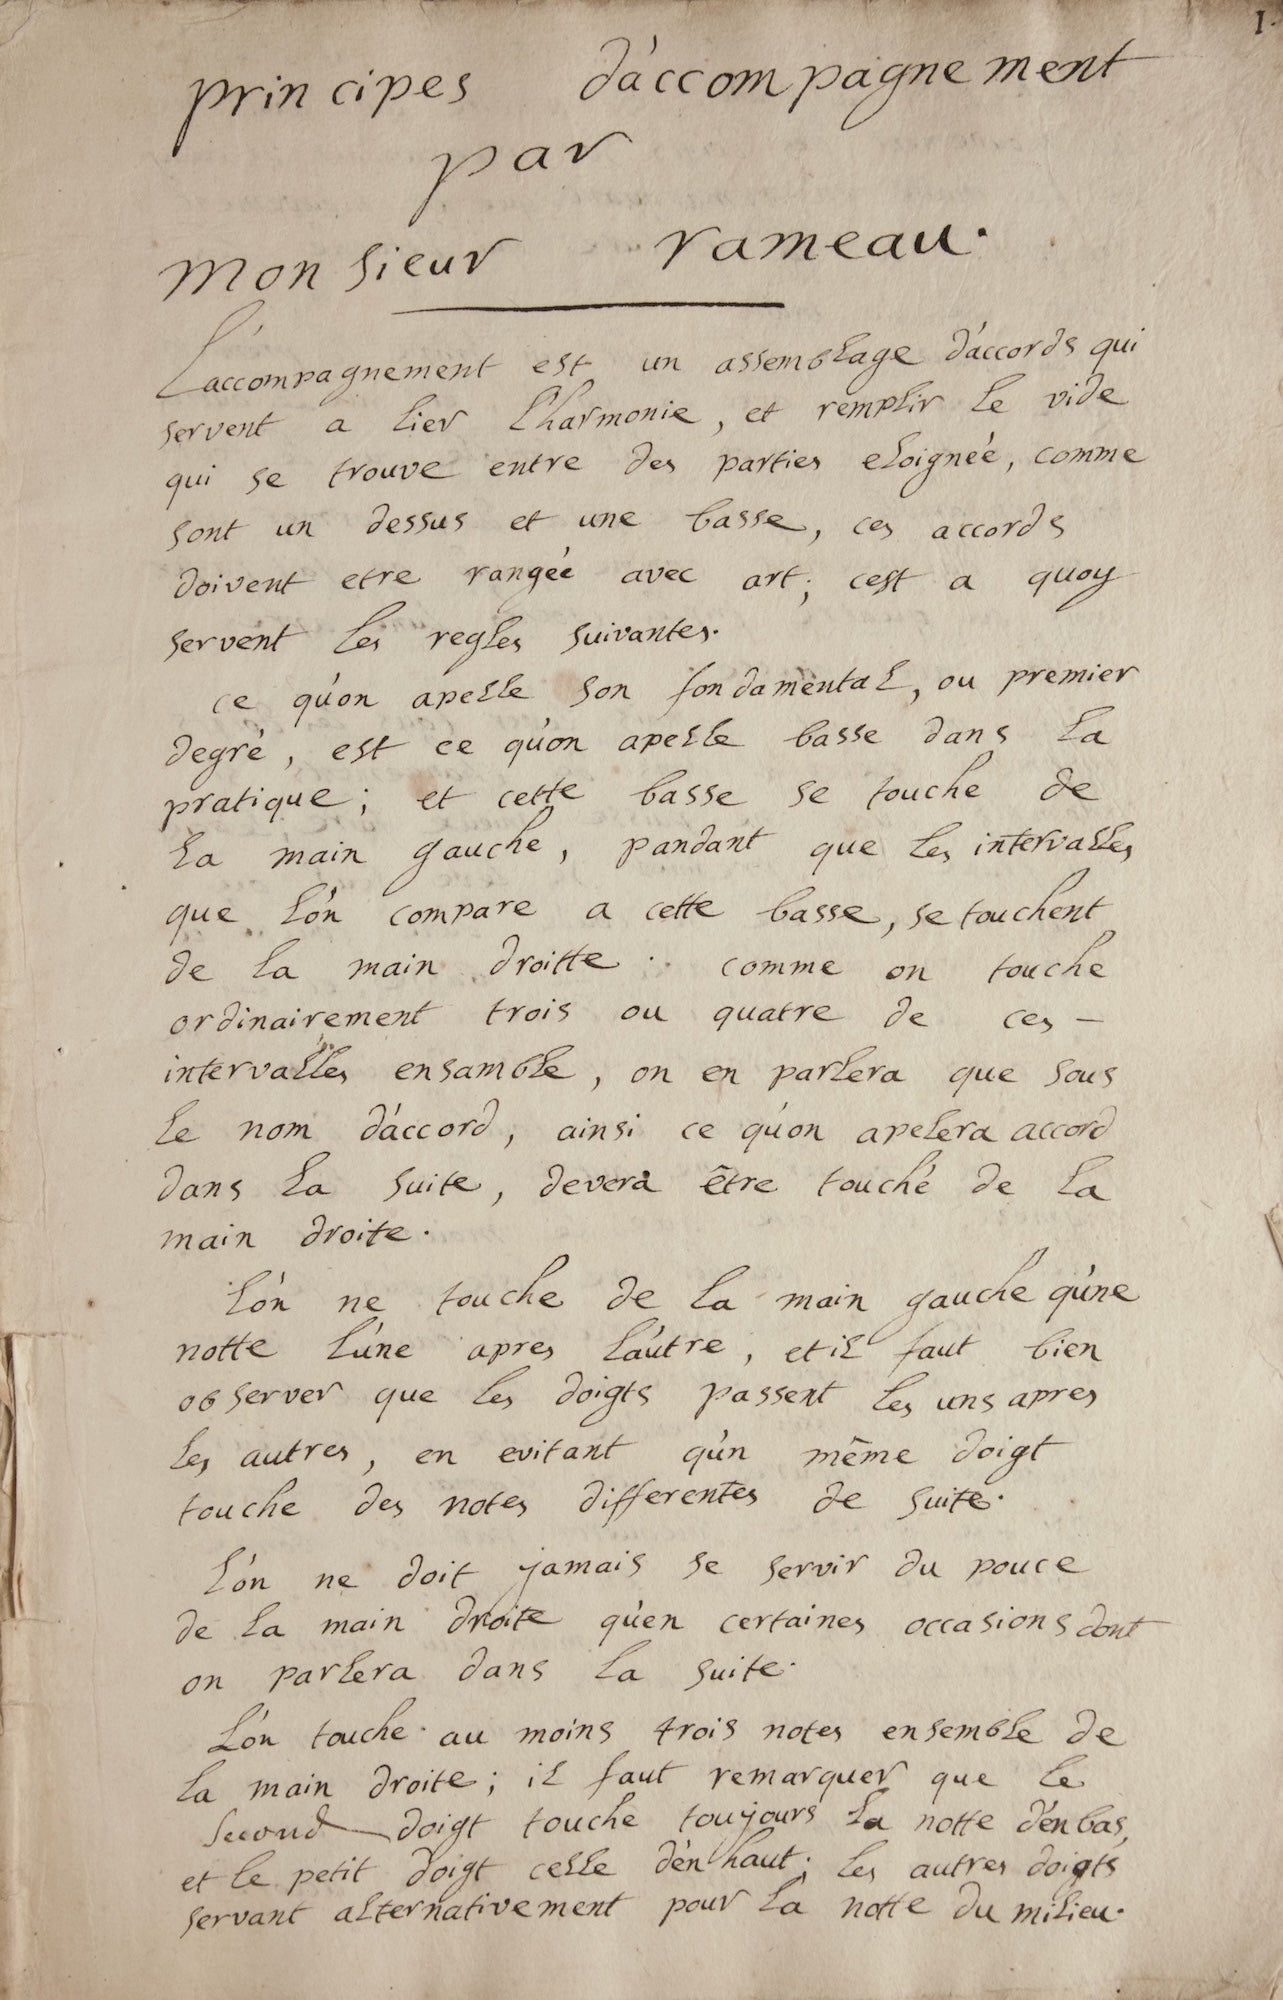 1.
principes d'accompagnement
par
monsieur rameau.
L'accompagnement est un assemblage d'accords qui
servent a lier l'harmonie, et remplir le vide
qui se trouve entre des parties eloignéé, comme
sont un dessus et une basse, ces accords
doivent etre rangéé avec art; cest a quoy
servent les regles suivantes.
ce qu'on apelle son fondamental, ou premier
degré, est ce qu'on apelle basse dans la
pratique; et cette basse se touche de
la main gauche, pandant que les intervalles
que l'on compare a cette basse, se touchent
de la main droitte. comme on touche
ordinairement trois ou quatre de ces -
intervalles ensamble, on en parlera que sous
le nom d'accord, ainsi ce qu'on apelera accord
dans la suite, devera être touché de la
main droite.
L'on ne touche de la main gauche qu'ne
notte l'une apres l'autre, et il faut bien
observer que les doigts passent les uns apres
les autres, en evitant qu'n même doigt
touche des notes differentes de suite.
L'on ne doit jamais se servir du pouce
de la main droite qu'en certaines occasions dont
on parlera dans la suite.
L'on touche. au moins trois notes ensemble de
la main droite; il faut remarquer que le
second doigt touche toujours la notte d'en bas,
et le petit doigt celle d'en haut; les autres doigts
servant alternativement pour la notte du milieu.